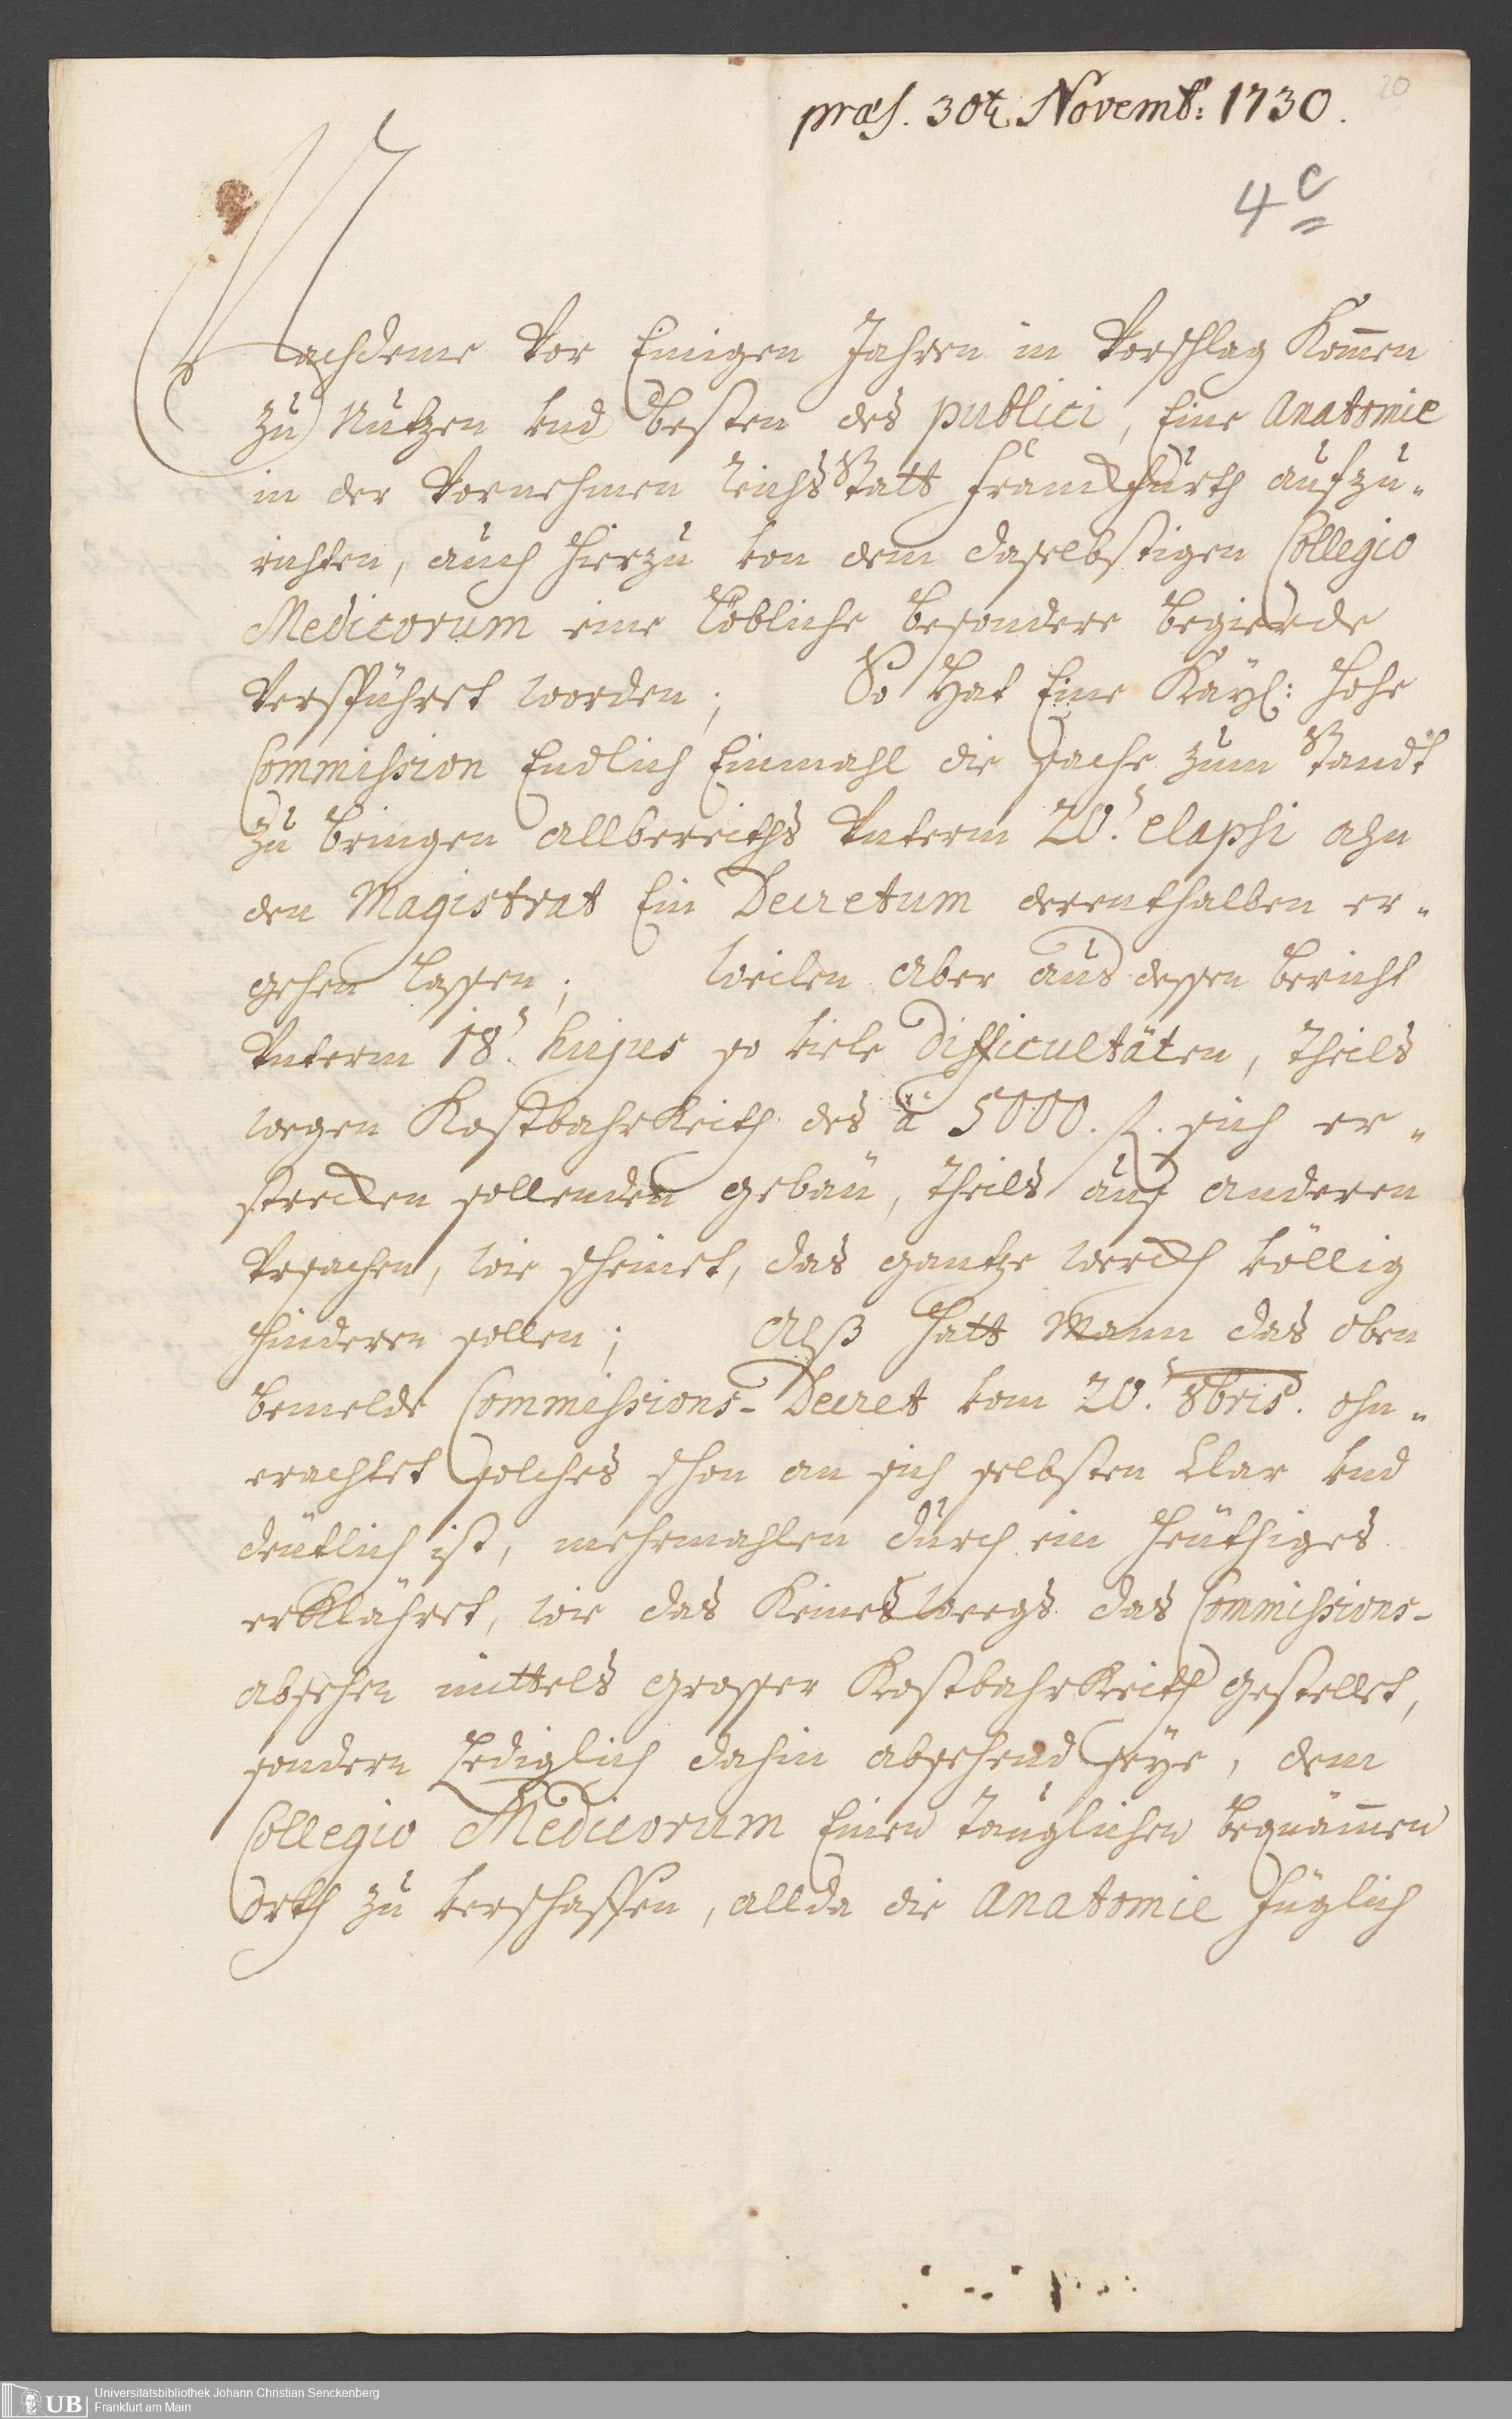 20
præs. 30t. Novemb: 1730.
4 c
Nachdeme Vor Einigen Jahren in Vorschlag Kom̅en
zu Nutzen und Besten des publici, Eine Anatomie
in der Vornehmen ReichsStatt Franckfurth aufzu-
richten, auch hierzu von dem daselbstigen Collegio
Medicorum eine löbliche besondere begierde
Verspühret worden; So Hat Eine Kayl: hohe
Commission Endlich Einmahl die sache zum Standt
zu bringen allbereiths Unterm 20.ˢ elapsi ahn
den Magistrat Ein Decretum derenthalben er-
gehen lassen; Weilen aber aus dessen bericht
Unterm 18.ˢ hujus so viele Difficultäten, theils
wegen Kostbahrkeith des à 5000. fl. sich er-
strecken sollenden gebäu, theils auf anderen
Ursachen, wie scheinet, das gantze werckh völlig
hinderen sollen; Alß hatt Mann das oben
bemelde Commissions-Decret vom 20.ˢ 8bris. ohn-
erachtet solches schon an sich selbsten Clar und
deutlich ist, mehrmahlen durch ein heuthiges
erklähret, wie das Keines weegs das Commissions-
absehen mittels grosser Kostbahrkeith gestellet,
sondern Lediglich dahin absehend seye, dem
Collegio Medicorum Einen tauglichen bequäm̅en
Orth zu verschaffen, allda die Anatomie füglich
Universitätsbibliothek Johann Christian Senckenberg
Frankfurt am Main
UB